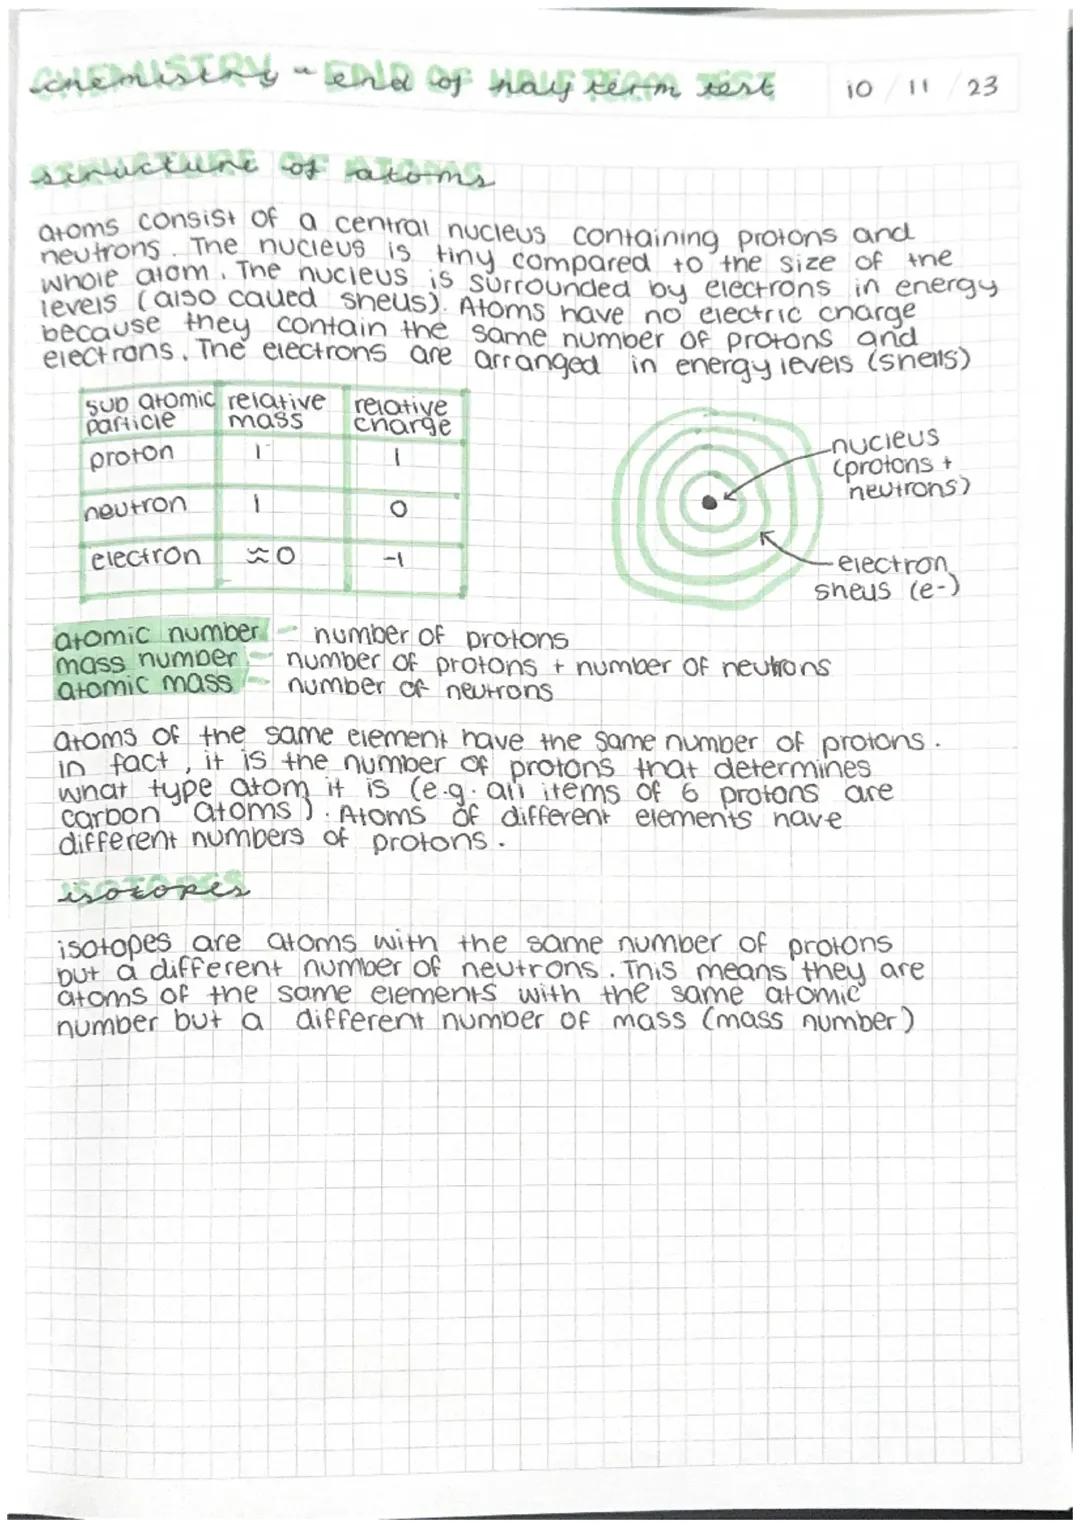 chemistry - end of half term test
10 / 11 / 23
structure of atoms
atoms consist of a central nucleus containing protons and
neutrons. The nucleus is tiny compared to the size of the
whole atom. The nucleus is surrounded by electrons in energy
levels (also called shells). Atoms have no electric charge
because they contain the same number of protons and
electrons. The electrons are arranged in energy levels (shells)
sub atomic particle | relative mass | relative charge
proton | 1 | 1
neutron | 1 | 0
electron | ≈0 | -1
nucleus
(protons +
neutrons)
electron
shells (e-)
atomic number - number of protons
mass number - number of protons + number of neutrons
atomic mass - number of neutrons
atoms of the same element have the same number of protons.
in fact, it is the number of protons that determines
what type atom it is (e.g. all items of 6 protons are
carbon atoms). Atoms of different elements have
different numbers of protons.
isotopes
isotopes are atoms with the same number of protons
but a different number of neutrons. This means they are
atoms of the same elements with the same atomic
number but a different number of mass (mass number)